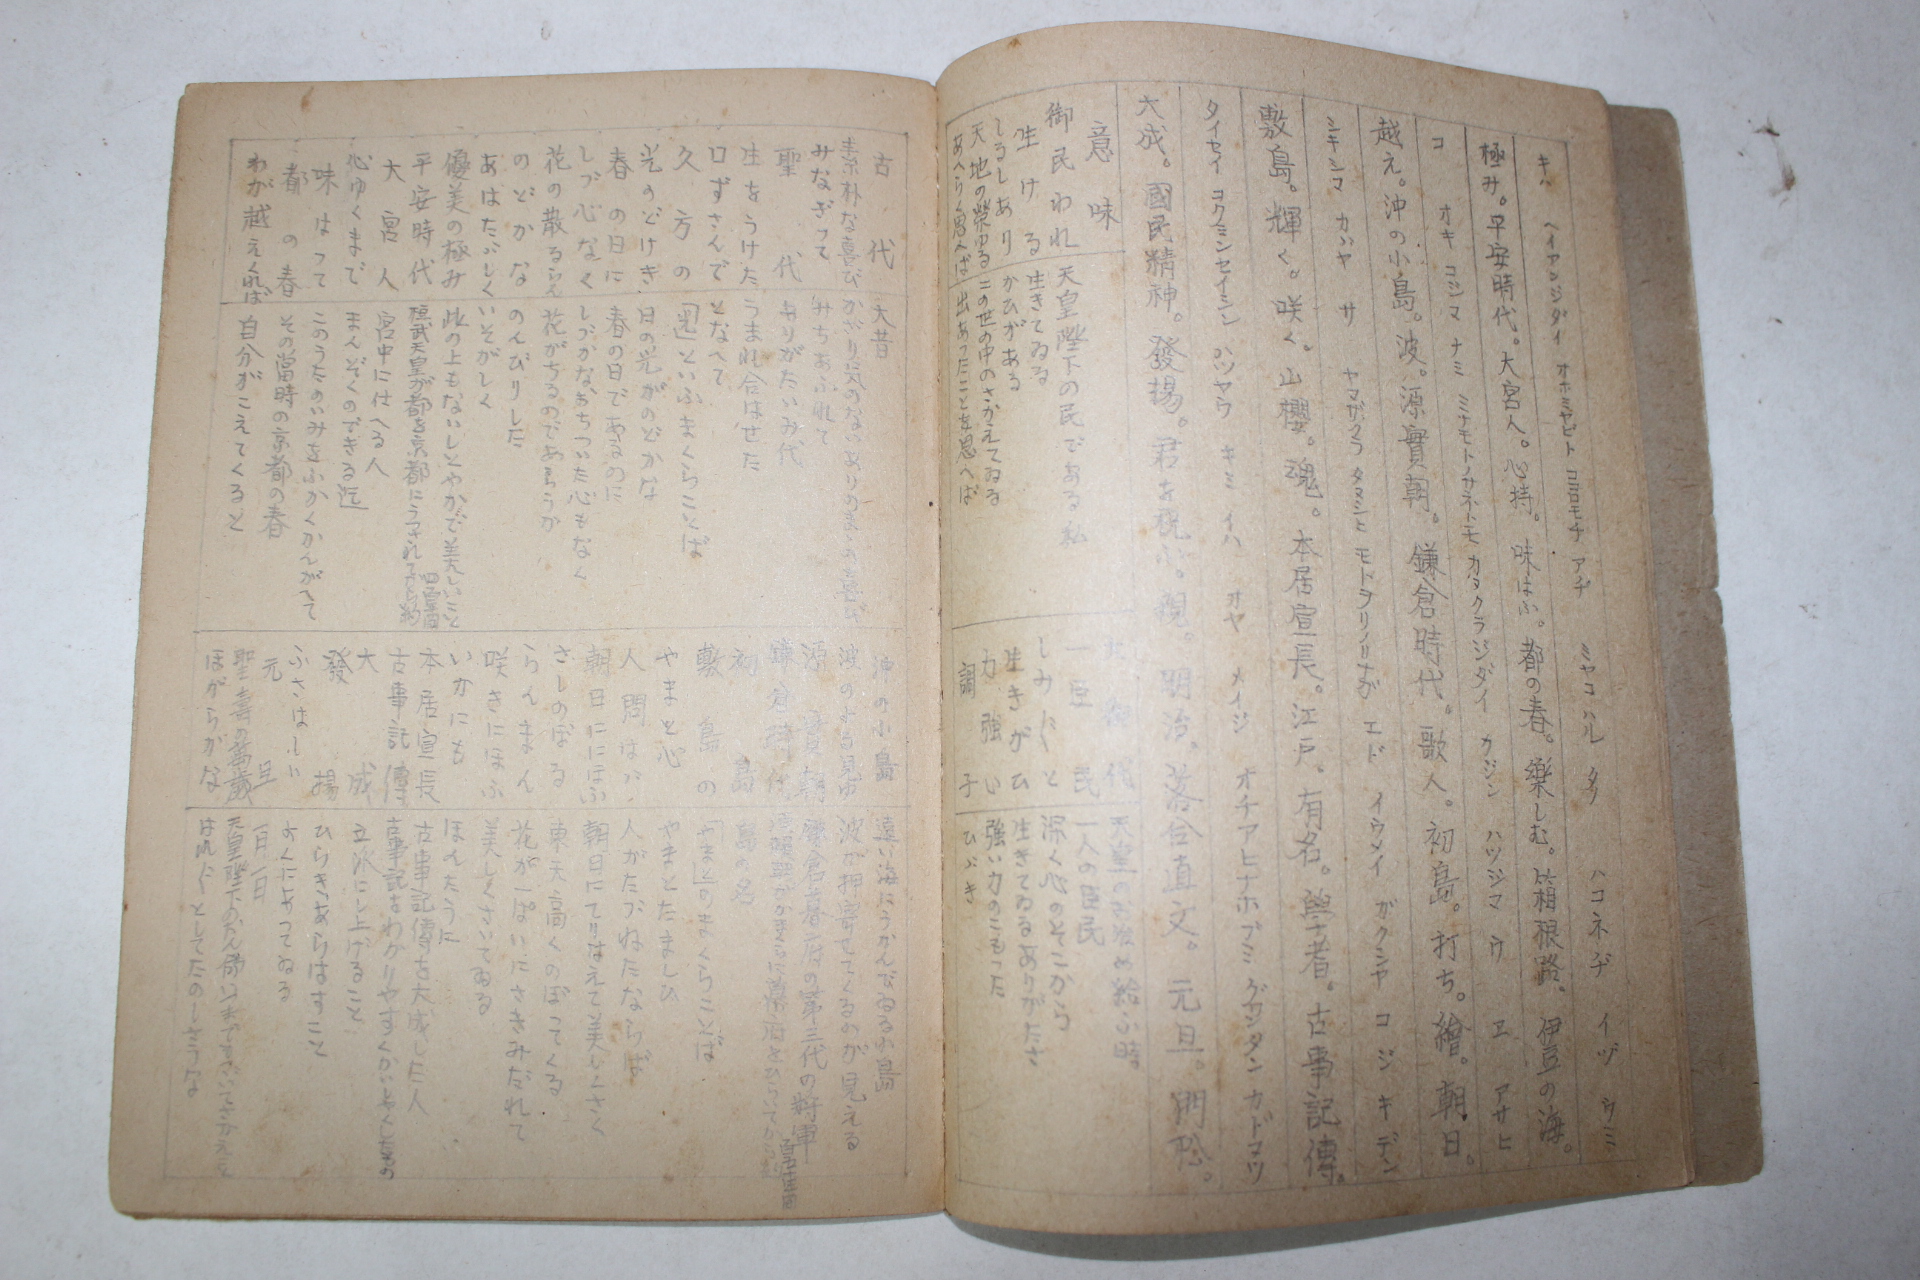 キハ ヘイアンジダイ オホミヤビト コヽロモチ アヂ ミヤコハル タノ ハコネヂ イヅ ウミ
極み。平安時代。大宮人。心持。味はふ。都の春。樂しむ。箱根路。伊豆の海。
コ オキ コジマ ナミ ミナモトノサネトモ カマクラジダイ カジン ハツシマ ウ ヱ アサヒ
越え。沖の小島。波。源實朝。鎌倉時代。歌人。初島。打ち。繪。朝日。
シキシマ カヾヤ サ ヤマザクラ タマシヒ モトヲリノリナガ エド イウメイ ガクシヤ コジキデン
敷島。輝く。咲く。山櫻。魂。本居宣長。江戸。有名。學者。古事記傳。
タイセイ コクミンセイシン ハツヤウ キミ イハ オヤ メイジ オチアヒナホブミ グワンタン カドマツ
大成。國民精神。發揚。君を祝ふ。親。明治。落合直文。元旦。門松。
意味
御民われ 天皇陛下の民である私
生ける 生きてゐる
しるしあり かひがある
天地の榮ゆる この世の中のさかえてゐる
あへらく思へば 出あつたことを思へば
御代 天皇のお治め給ふ時
一臣民 一人の臣民
しみじみと 深く心のそこから
生きがひ 生きてゐるありがたさ
力強い 強い力のこもつた
調子 ひゞき
古代 大昔
素朴な喜び かざりに気のないありのまゝの喜び
みなぎつて みちあふれて
聖代 ありがたいみ代
生をうけた うまれ合はせた
口ずさんで となへて
久方の 「光」といふまくらことば
光のどけき 日の光がのどかな
春の日に 春の日であるのに
しづ心なく しづかなおちついた心もなく
花の散るらん 花がちるのであらうか
のどかな のんびりした
あはたゞしく いそがしく
優美の極み 此の上もないしとやかで美しいこと
平安時代 桓武天皇が都を京都にうつされてから約四百年間
大宮人 宮中に仕へる人
心ゆくまで まんぞくのできる迄
味はつて このうたのいみをふかくかんがへて
都の春 その當時の京都の春
わが越えくれば 自分がこえてくると
沖の小島 遠い海にうかんでゐる小島
波のよる見ゆ 波が押寄せてくるのが見える
源實朝 鎌倉幕府の第三代の將軍
鎌倉時代 源頼朝がかまくらに幕府をひらいてから
初島 島の名
敷島の 「やまと」のまくらことば
やまと心 やまとたましひ
人問はゞ 人がたづねたならば
朝日ににほふ 朝日にてりはえて美しくさく
さしのぼる 東天高くのぼつてくる
らんまん 花がいつぱいにさきみだれて
咲きにほふ 美しくさいてゐる
いかにも ほんたうに
本居宣長 古事記傳を大成した人
古事記傳 古事記をわかりやすくかいたもの
大成 立派にし上げること
發揚 ひらきあらはすこと
ふさはしい よくにあつてゐる
元旦 一月一日
聖壽の萬歳
ほがらかな はればれとしてたのしさうな